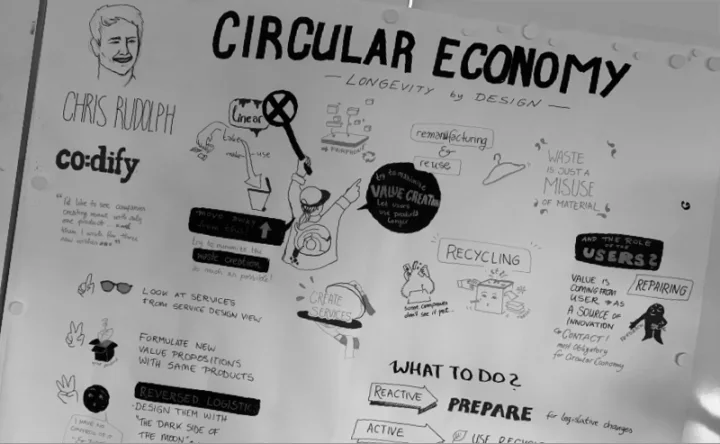 CIRCULAR ECONOMY
— LONGEVITY by DESIGN —
CHRIS RUDOLPH
co:dify
"I'd like to see companies
creating more with only
one product
Linear
Take
make
use
MOVE AWAY
FROM THIS!
try to minimize the
waste creation
as much as possible!
try to maximize
VALUE CREATION
Let users
use products
longer
remanufacturing
&
reuse
WASTE
IS JUST A
MISUSE
OF MATERIAL
RECYCLING
some companies
don't see it yet...
AND THE ROLE
OF THE
USERS?
VALUE IS
COMING FROM
USER → AS
A SOURCE OF
INNOVATION
CONTACT!
most Obligatory
for Circular Economy
REPAIRING
LOOK AT SERVICES
FROM SERVICE DESIGN VIEW
CREATE
SERVICES
FORMULATE NEW
VALUE PROPOSITIONS
WITH SAME PRODUCTS
REVERSED LOGISTIC
DESIGN THEM WITH
"THE DARK SIDE
OF THE MOON"
WHAT TO DO?
REACTIVE
PREPARE for legislative changes
ACTIVE
USE